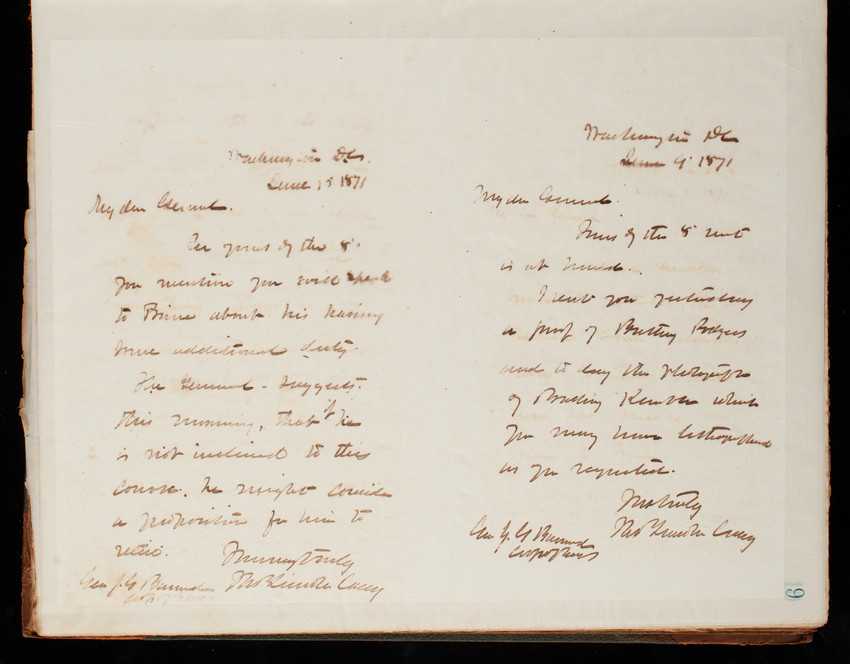 Washington D.C.
June 1871
My dear General.
In yours of the 8"
you mention you will speak
to Prime about his having
some additional duty.
The General suggests
this morning, that if he
is not inclined to this
course, he might consider
a proposition for him to
retire.
Yours very truly
Gen J. G Barnard Thos Lincoln Casey
Corps of
Washington DC
June 9" 1871
My dear General.
Yours of the 8" inst
is at hand.
I sent you yesterday
a proof of Battery Rodgers
and to day the photograph
of Battery which
you may have lithographed
as you requested.
Yrs truly
Gen J. G Barnard Thos Lincoln Casey
Corps of Engrs
16